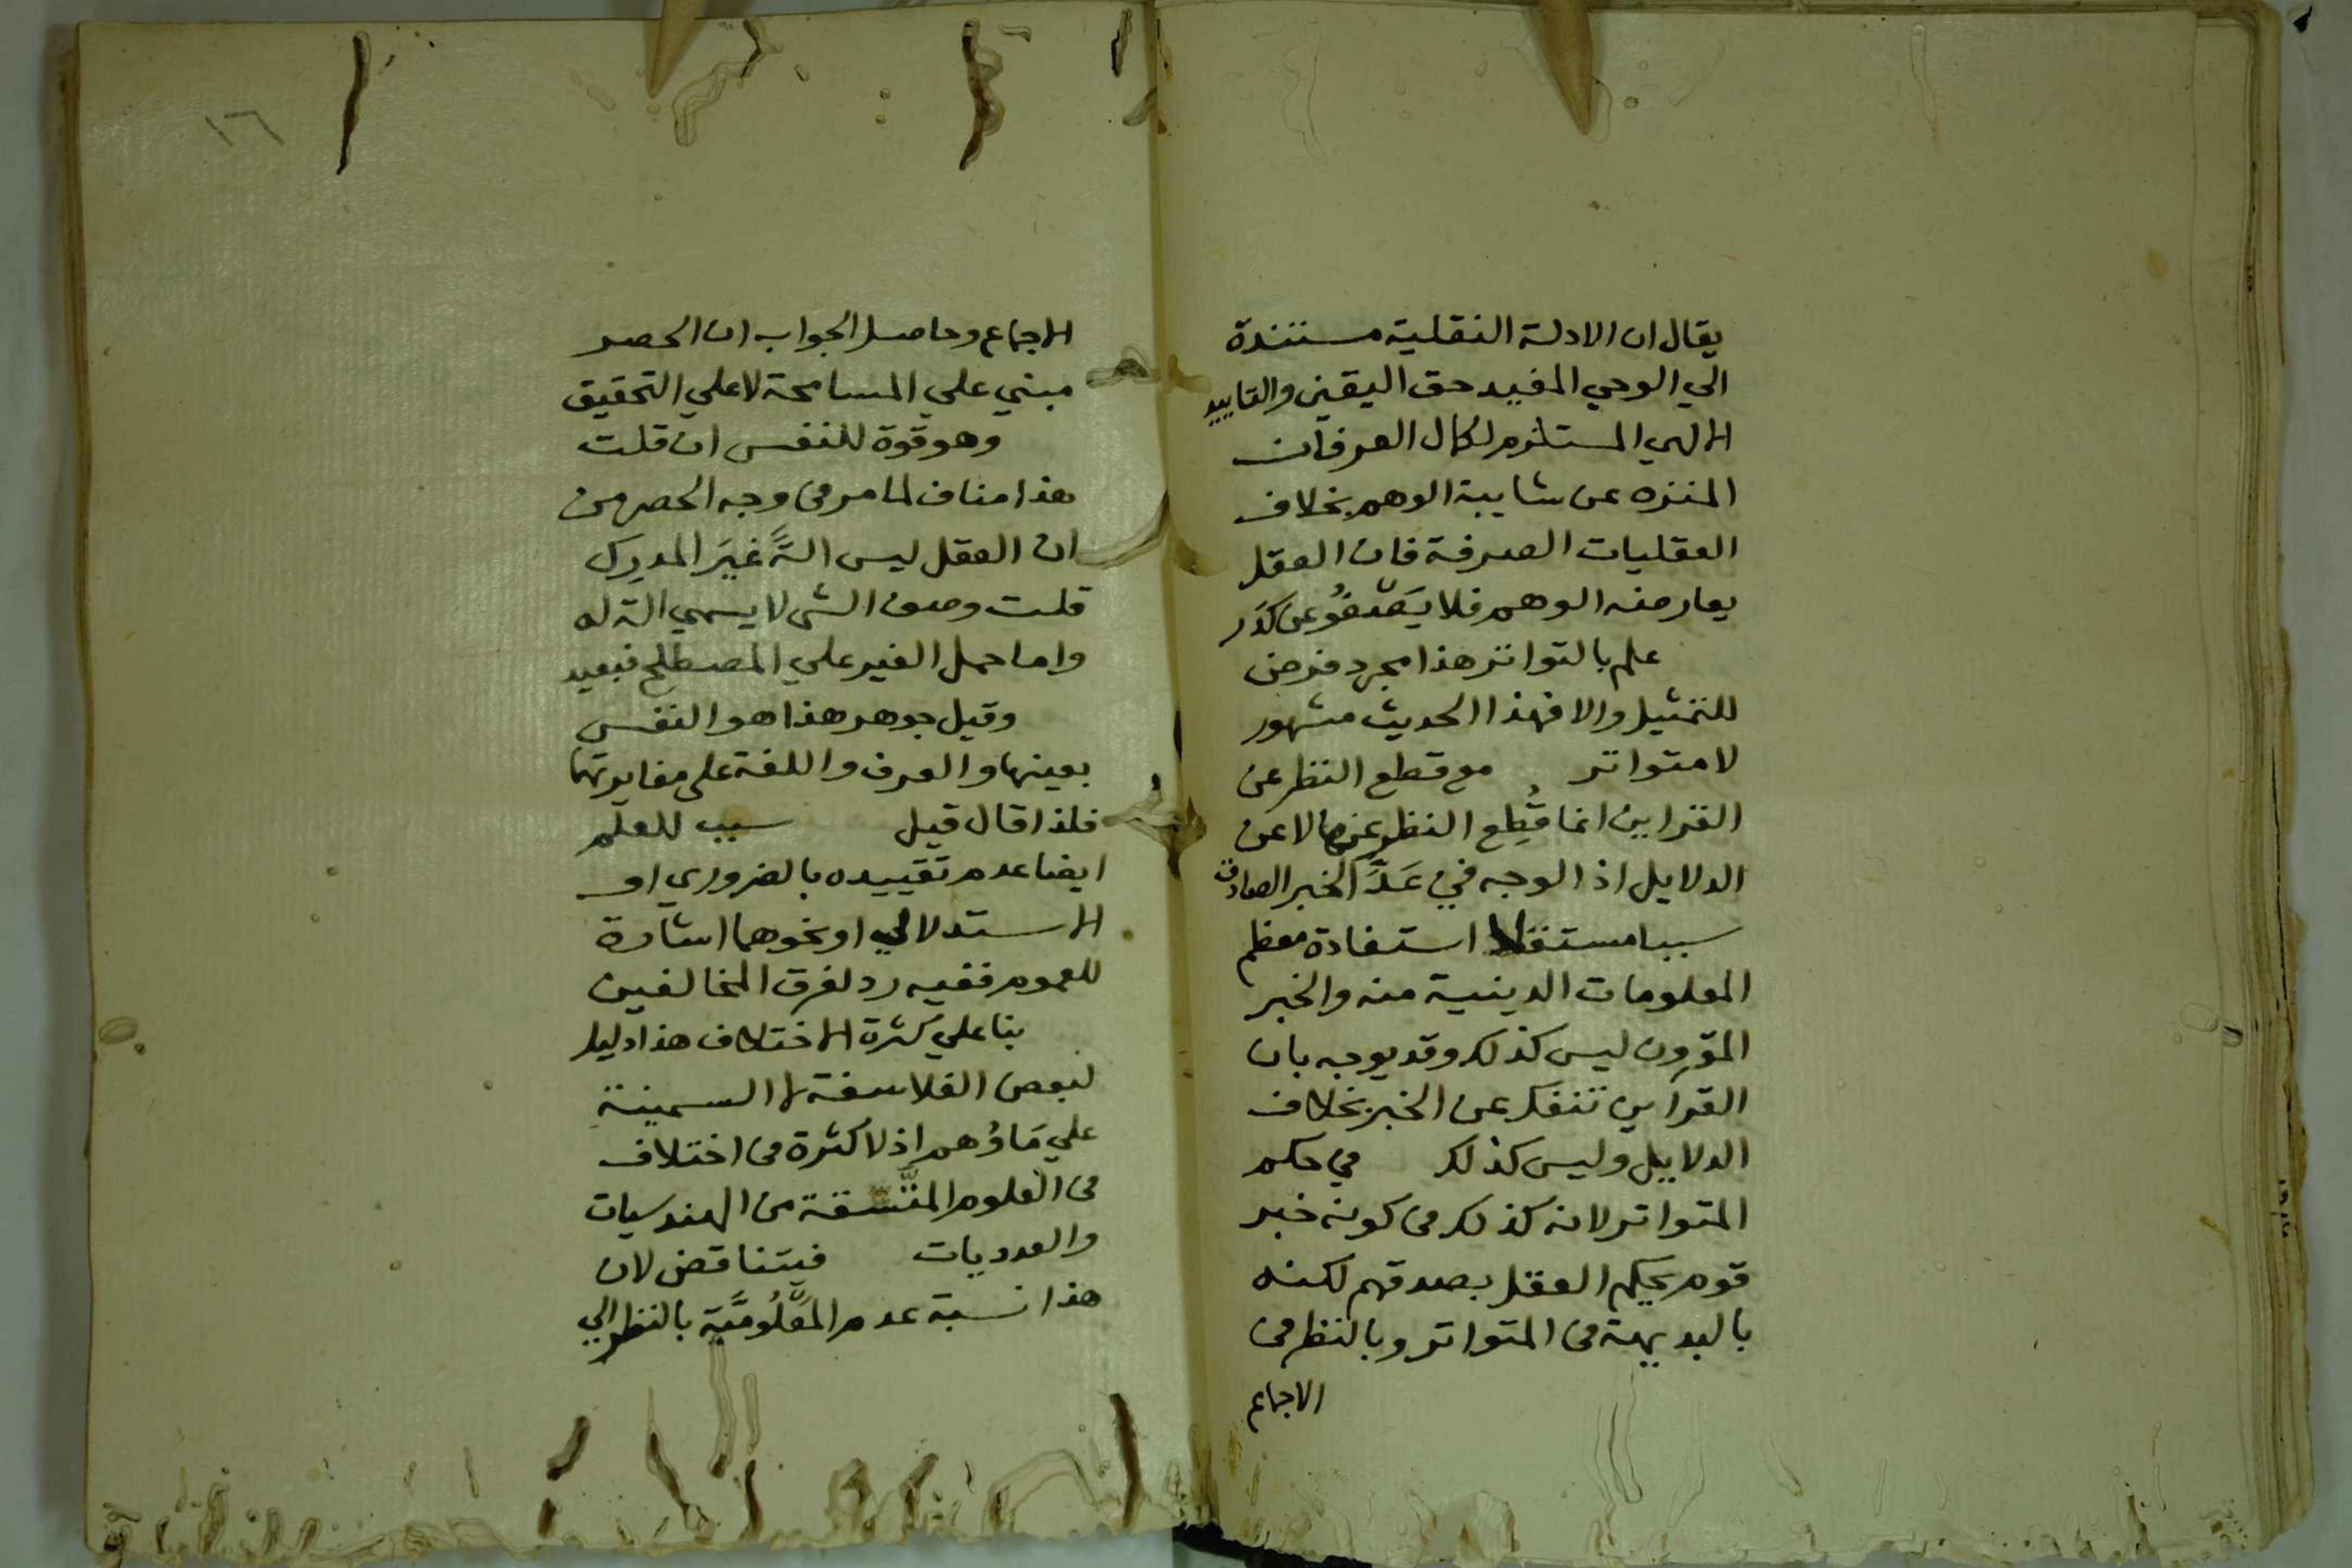 يقال ان الادلة النقلية مستندة
الي الوحي المفيد حق اليقين والتاييد
الالهي المستلزم لكمال العرفان
المنزه عن شايبة الوهم بخلاف
العقليات الصرفة فان العقل
يعارضه الوهم فلا يَصْفُو عن كدَر
علم بالتواتر هذا مجرد فرض
للتمثيل والا فهذا الحديث مشهور
لا متواتر مع قطع النظر عن
القراين انما قُطِع النظر عنها لا عن
الدلايل اذ الوجه في عَدِّ الخبر الصادق
سببا مستقلا استفادة معظم
المعلومات الدينية منه والخبر
المقرون ليس كذلك وقد يوجه بان
القراين تنفك عن الخبر بخلاف
الدلايل وليس كذلك في حكم
المتواتر لانه كذلك في كونه خبر
قوم يحكم العقل بصدقهم لكنه
بالبديهة في المتواتر وبالنظر في
الاجماع
١٦
الاجماع وحاصل الجواب ان الحصر
مبني علي المسامحة لا علي التحقيق
وهو قوة للنفس ان قلت
هذا مناف لما مر في وجه الحصر من
ان العقل ليس الةً غيرَ المدرِك
قلت وصف الشي لا يسمي الة له
واما حمل الغير علي المصطلح فبعيد
وقيل جوهر هذا هو النفس
بعينها والعرف واللغة على مغايرتهما
فلذا قال قيل سبب للعلم
ايضا عدم تقييده بالضروري او
الاستدلالي او نحوهما اشارة
للعموم ففيه رد لفرق المخالفين
بنا علي كثرة الاختلاف هذا دليل
لبعض الفلاسفة لا السمينة
علي مَا وُهم اذ لا كثرة في اختلاف
في العلوم المتَّسقة من الهندسيات
والعدديات فيتناقض لان
هذا نسبة عدم المَعْلُومِيَّة بالنظر الي